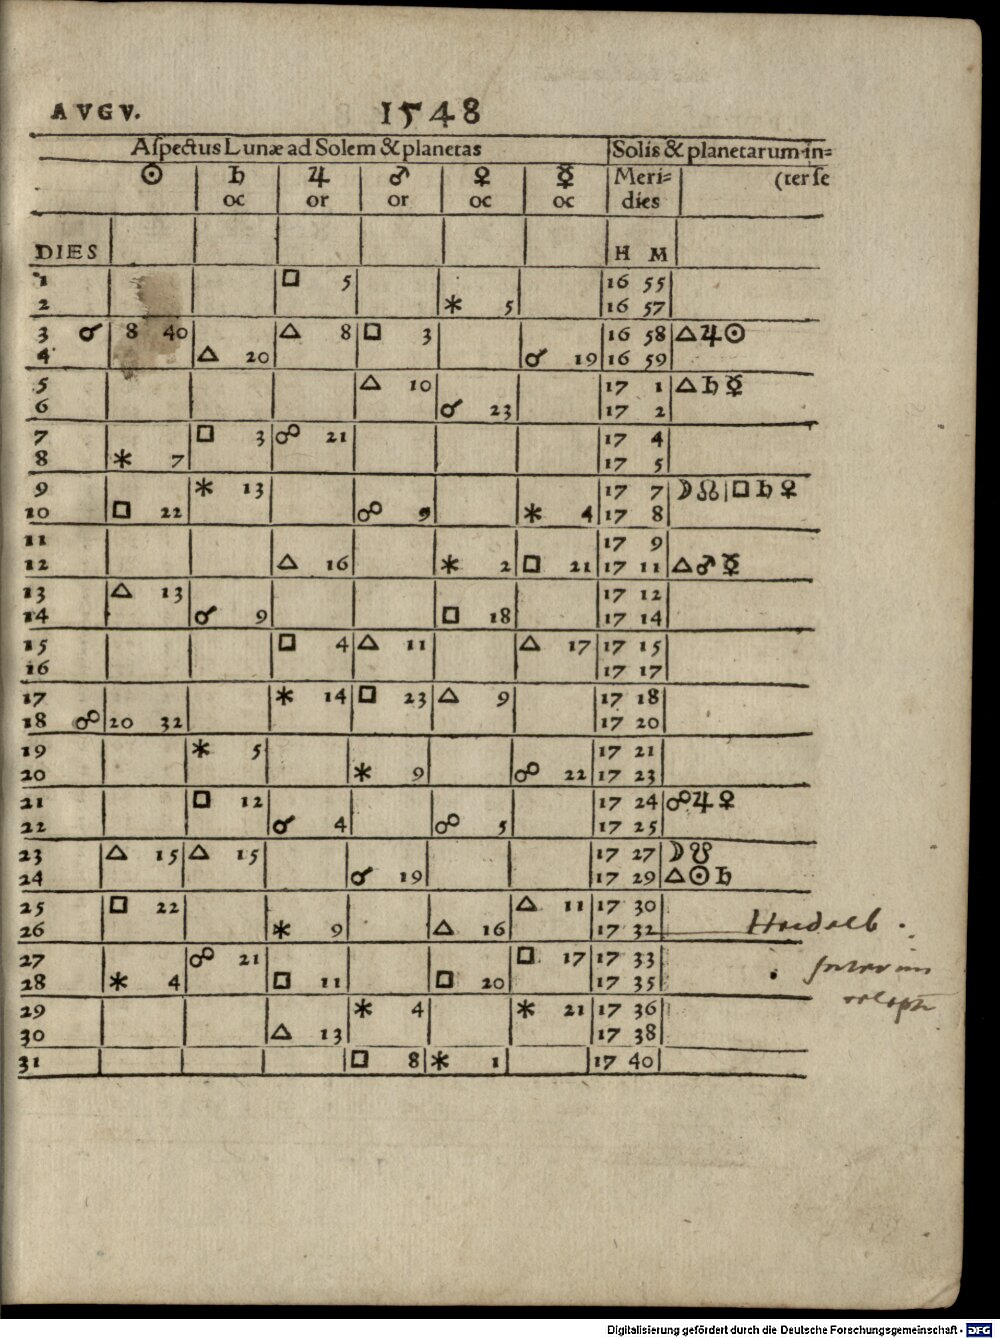 AVGV. 1548
Aſpectus Lunæ ad Solem & planetas Solis & planetarum in=
☉ ♄ ♃ ♂ ♀ ☿ Meri= (ter ſe
oc or or oc oc dies
DIES H M
1 □ 5 16 55
2 ⚹ 5 16 57
3 ☌ 8 40 △ 8 □ 3 16 58 △ ♃ ☉
4 △ 20 ☌ 19 16 59
5 △ 10 17 1 △ ♄ ☿
6 ☌ 23 17 2
7 □ 3 ☍ 21 17 4
8 ⚹ 7 17 5
9 ⚹ 13 17 7 ☽ ☊ | □ ♄ ♀
10 □ 22 ☍ 9 ⚹ 4 17 8
11 17 9
12 △ 16 ⚹ 2 □ 21 17 11 △ ♂ ☿
13 △ 13 17 12
14 ☌ 9 □ 18 17 14
15 □ 4 △ 11 △ 17 17 15
16 17 17
17 ⚹ 14 □ 23 △ 9 17 18
18 ☍ 20 32 17 20
19 ⚹ 5 17 21
20 ⚹ 9 ☍ 22 17 23
21 □ 12 17 24 ☍ ♃ ♀
22 ☌ 4 ☍ 5 17 25
23 △ 15 △ 15 17 27 ☽ ☋
24 ☌ 19 17 29 △ ☉ ♄
25 □ 22 △ 11 17 30
26 ⚹ 9 △ 16 17 32
27 ☍ 21 □ 17 17 33
28 ⚹ 4 □ 11 □ 20 17 35
29 ⚹ 4 ⚹ 21 17 36
30 △ 13 17 38
31 □ 8 ⚹ 1 17 40
Digitalisierung gefördert durch die Deutsche Forschungsgemeinschaft - DFG